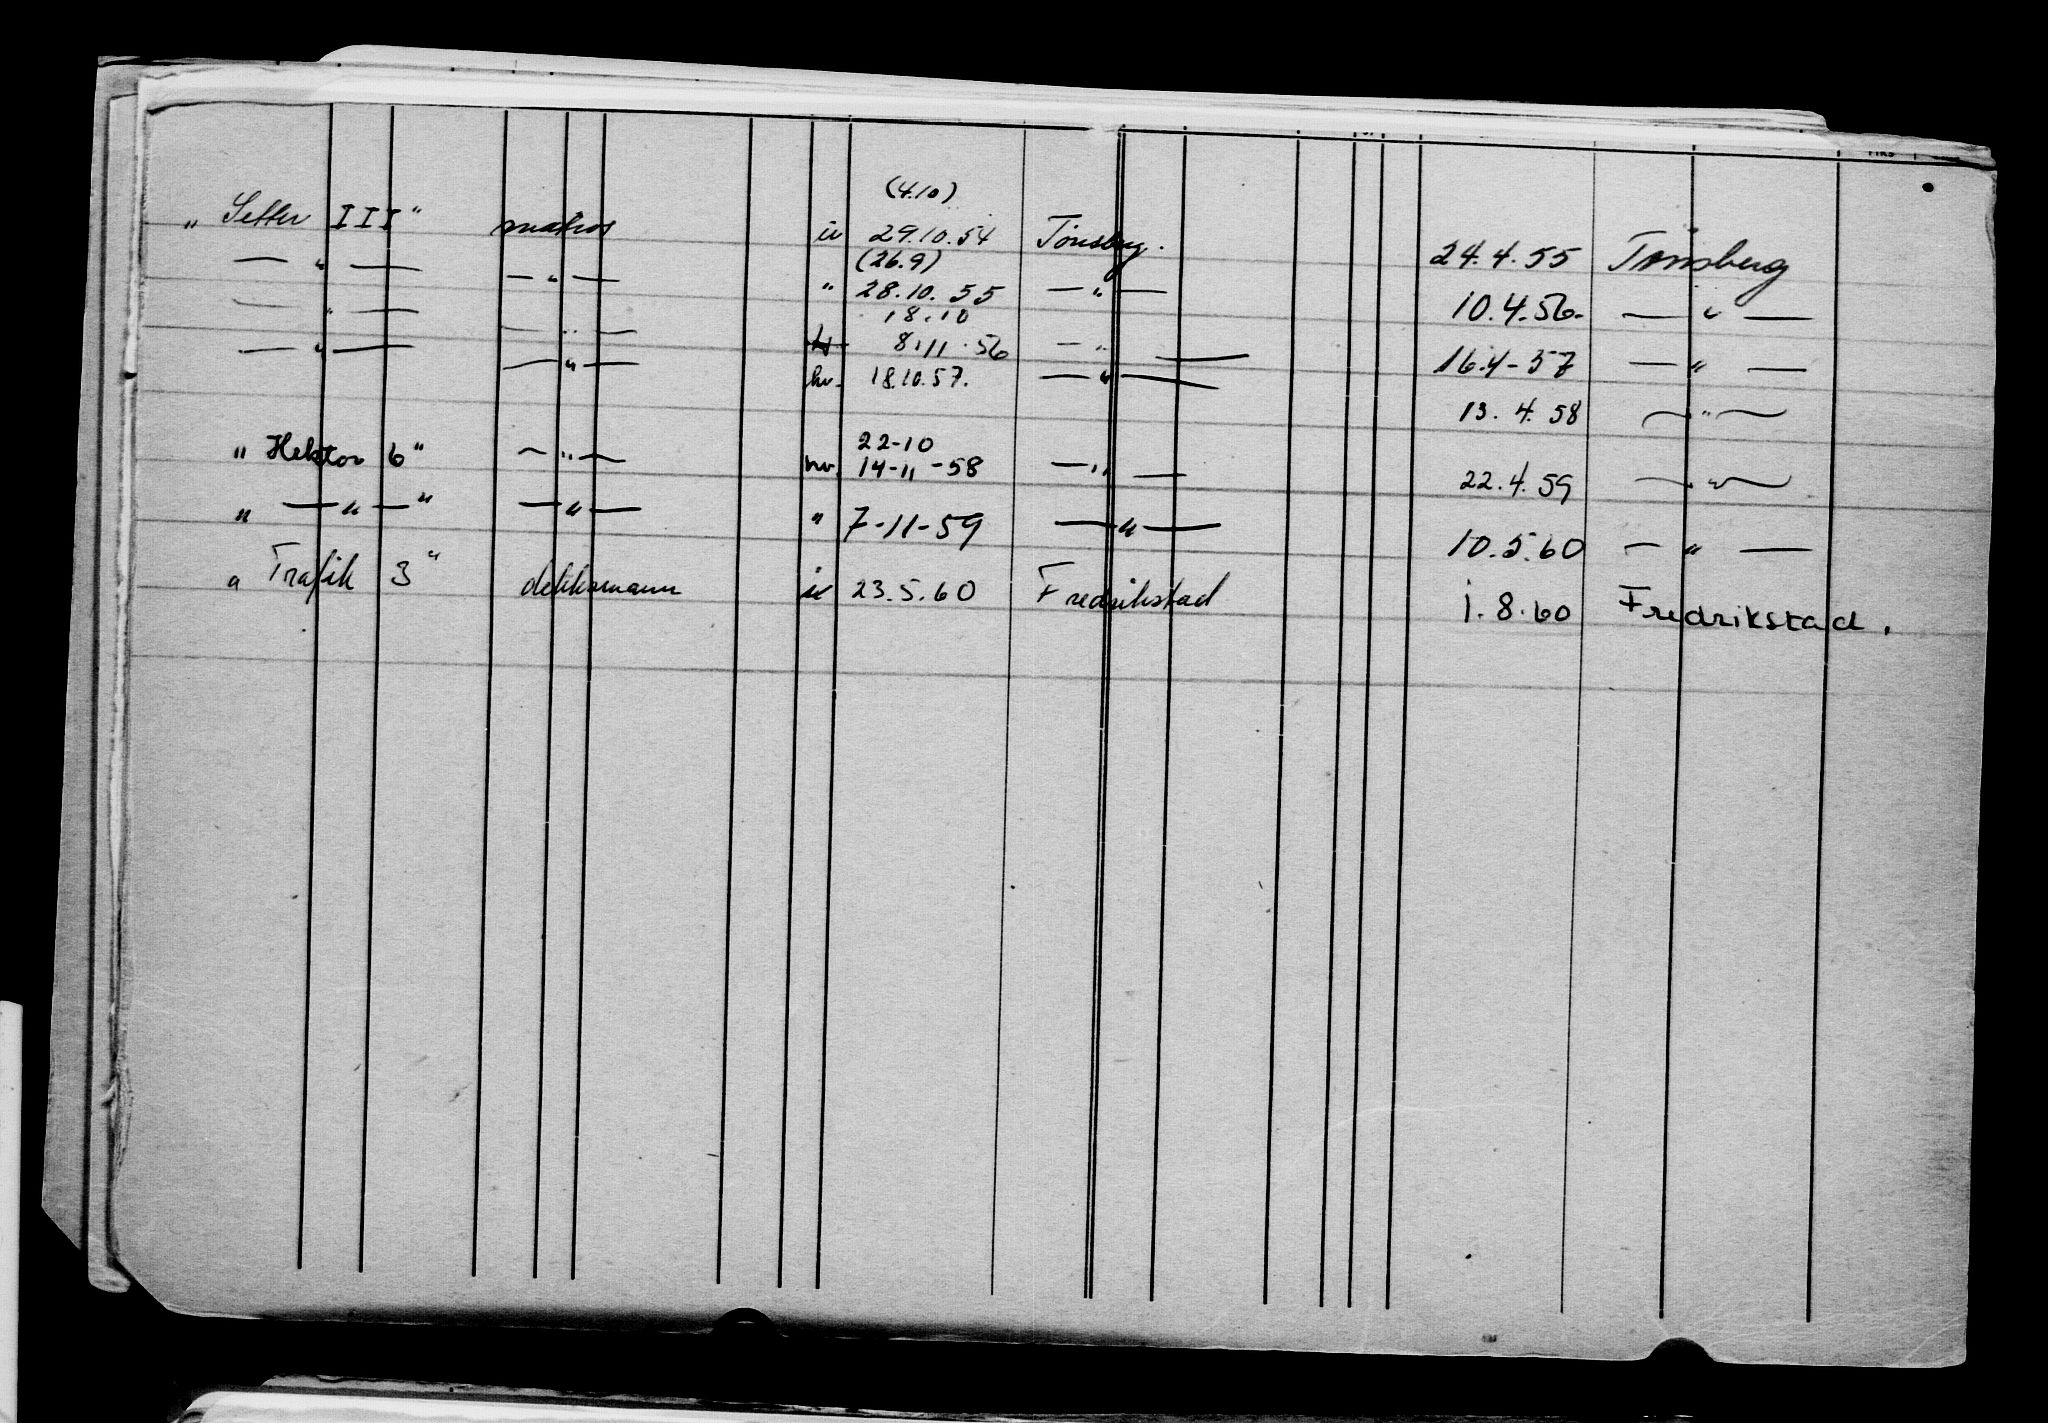 (4.10)
„ Setter III" matros u 29.10.54 Tønsberg. 24.4.55 Tønsberg
— " — — " — (26.9)
" 28.10.55 — " — 10.4.56. — " —
— " — — " — 18.10
8.11.56 — " — 16.4-57 — " —
— " — — " — hv. 18.10.57. — " — 13.4.58 — " —
22-10
" Hektor 6" — " — hv. 14-11-58 — " — 22.4.59 — " —
" — " — " — " — " 7-11-59 — " — 10.5.60 — " —
" Trafik 3" dekksmann u 23.5.60 Fredrikstad 1.8.60 Fredrikstad.